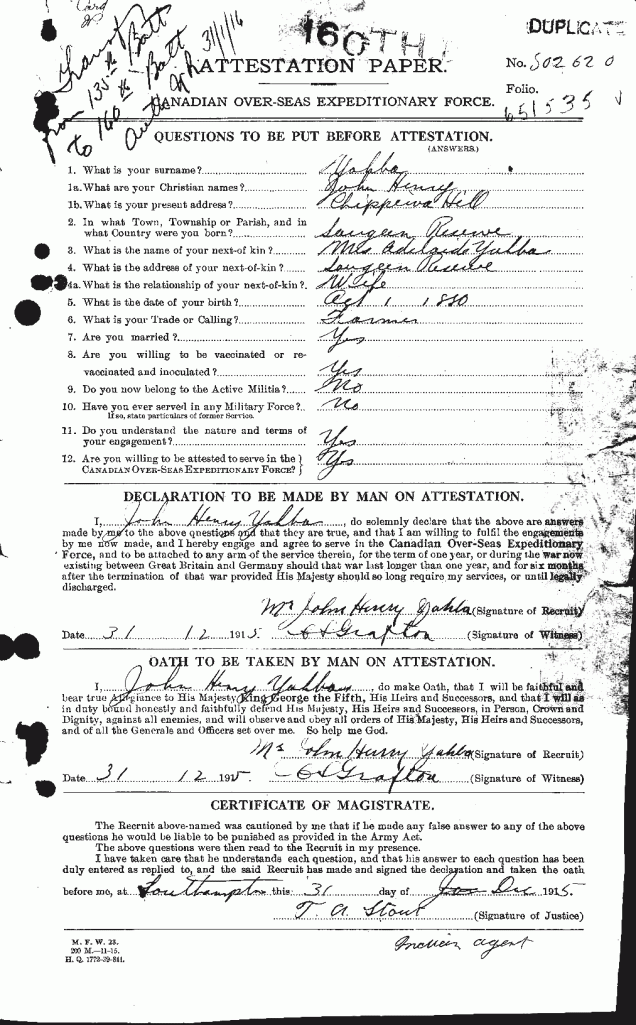 160TH
DUPLICATE
Transf
from 135th Batt
to 160th Batt
31/1/16
ATTESTATION PAPER.
No. 802620
Folio.
651535
CANADIAN OVER-SEAS EXPEDITIONARY FORCE.
QUESTIONS TO BE PUT BEFORE ATTESTATION.
(ANSWERS.)
1. What is your surname? Yahba
1a. What are your Christian names? John Henry
1b. What is your present address? Chippewa Hill
2. In what Town, Township or Parish, and in
what Country were you born? Saugeen Reserve
3. What is the name of your next-of kin? Mrs Adelaide Yahba
4. What is the address of your next-of-kin? Saugeen Reserve
4a. What is the relationship of your next-of-kin? Wife
5. What is the date of your birth? Oct 1 1880
6. What is your Trade or Calling? Farmer
7. Are you married? Yes
8. Are you willing to be vaccinated or re-
vaccinated and inoculated? Yes
9. Do you now belong to the Active Militia? No
10. Have you ever served in any Military Force? No
If so, state particulars of former Service.
11. Do you understand the nature and terms of
your engagement? Yes
12. Are you willing to be attested to serve in the
CANADIAN OVER-SEAS EXPEDITIONARY FORCE? Yes
DECLARATION TO BE MADE BY MAN ON ATTESTATION.
I, John Henry Yahba, do solemnly declare that the above are answers
made by me to the above questions and that they are true, and that I am willing to fulfil the engagements
by me now made, and I hereby engage and agree to serve in the Canadian Over-Seas Expeditionary
Force, and to be attached to any arm of the service therein, for the term of one year, or during the war now
existing between Great Britain and Germany should that war last longer than one year, and for six months
after the termination of that war provided His Majesty should so long require my services, or until legally
discharged.
Mr John Henry Yahba (Signature of Recruit)
Date 31 12 1915. Grafton (Signature of Witness)
OATH TO BE TAKEN BY MAN ON ATTESTATION.
I, John Henry Yahba, do make Oath, that I will be faithful and
bear true Allegiance to His Majesty King George the Fifth, His Heirs and Successors, and that I will as
in duty bound honestly and faithfully defend His Majesty, His Heirs and Successors, in Person, Crown and
Dignity, against all enemies, and will observe and obey all orders of His Majesty, His Heirs and Successors,
and of all the Generals and Officers set over me. So help me God.
Mr John Henry Yahba (Signature of Recruit)
Date 31 12 1915 Grafton (Signature of Witness)
CERTIFICATE OF MAGISTRATE.
The Recruit above-named was cautioned by me that if he made any false answer to any of the above
questions he would be liable to be punished as provided in the Army Act.
The above questions were then read to the Recruit in my presence.
I have taken care that he understands each question, and that his answer to each question has been
duly entered as replied to, and the said Recruit has made and signed the declaration and taken the oath
before me, at Southampton this 31 day of Dec 1915.
T. A. Stout (Signature of Justice)
Indian agent
M. F. W. 23.
200 M.—11-15.
H. Q. 1772-39-841.